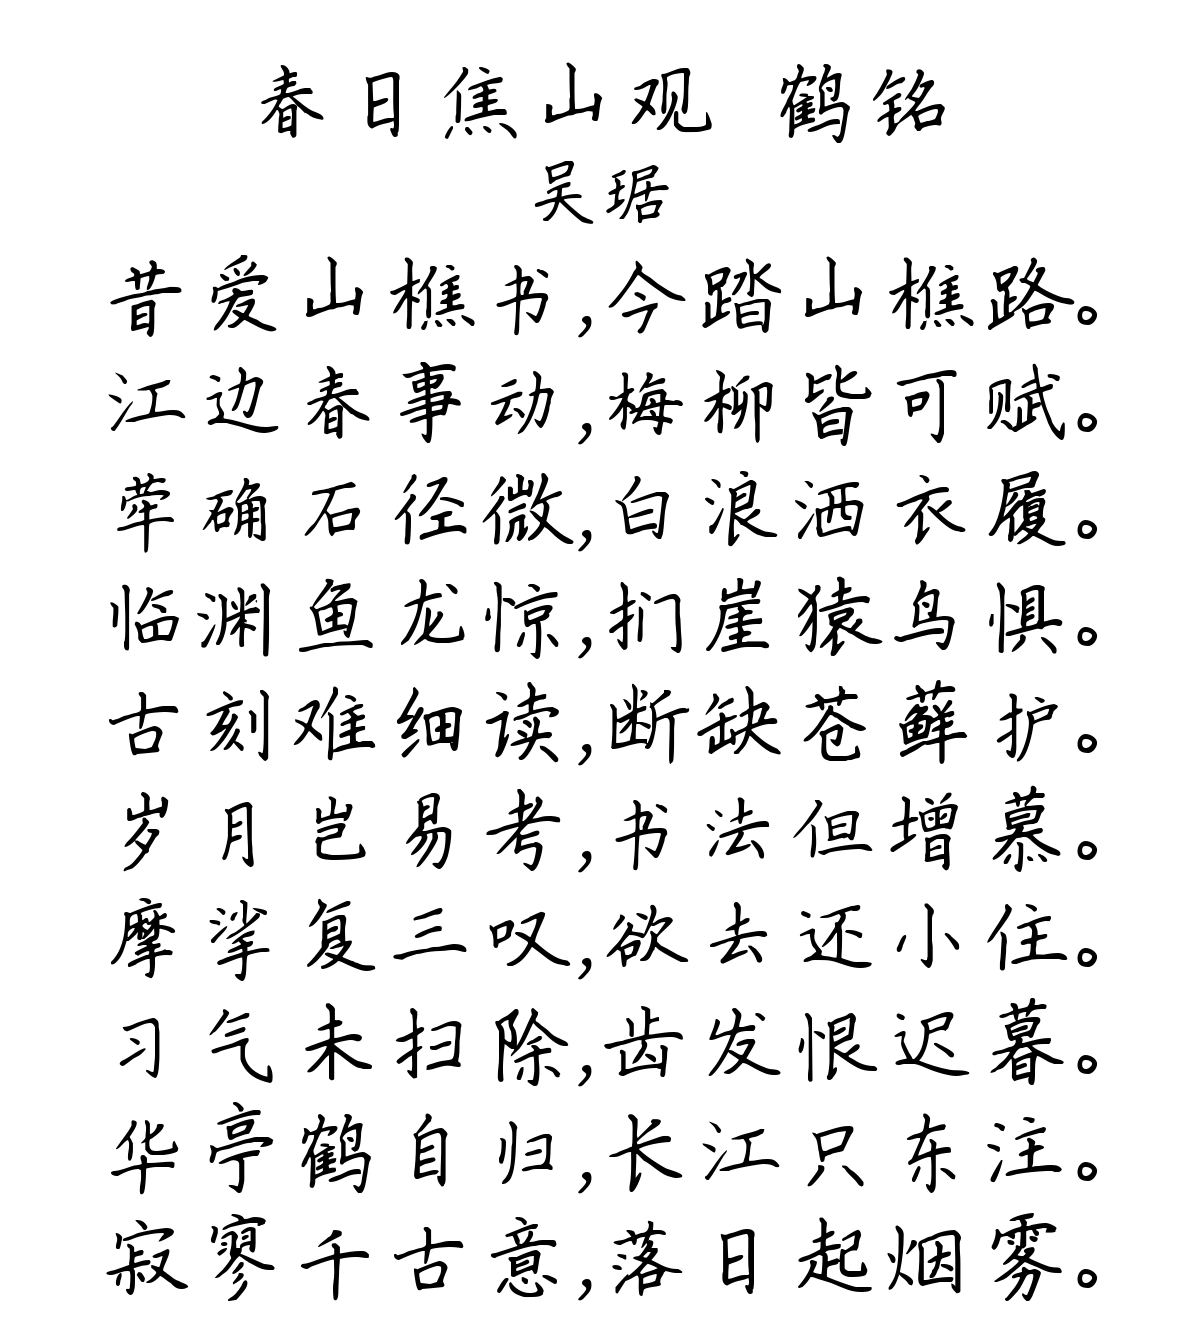 春日焦山观 鹤铭
吴琚
昔爱山樵书,今踏山樵路。
江边春事动,梅柳皆可赋。
荦确石径微,白浪洒衣履。
临渊鱼龙惊,扪崖猿鸟惧。
古刻难细读,断缺苍藓护。
岁月岂易考,书法但增慕。
摩挲复三叹,欲去还小住。
习气未扫除,齿发恨迟暮。
华亭鹤自归,长江只东注。
寂寥千古意,落日起烟雾。